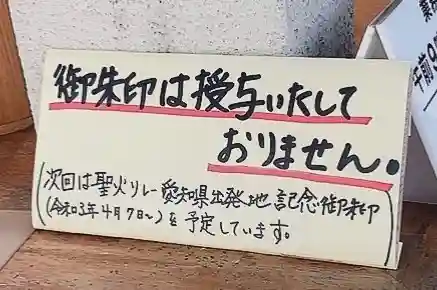 御朱印は授与いたして
おりません。
(次回は聖火リレー愛知県出発地記念御朱印
(令和3年4月7日〜)を予定しています。)
午前9